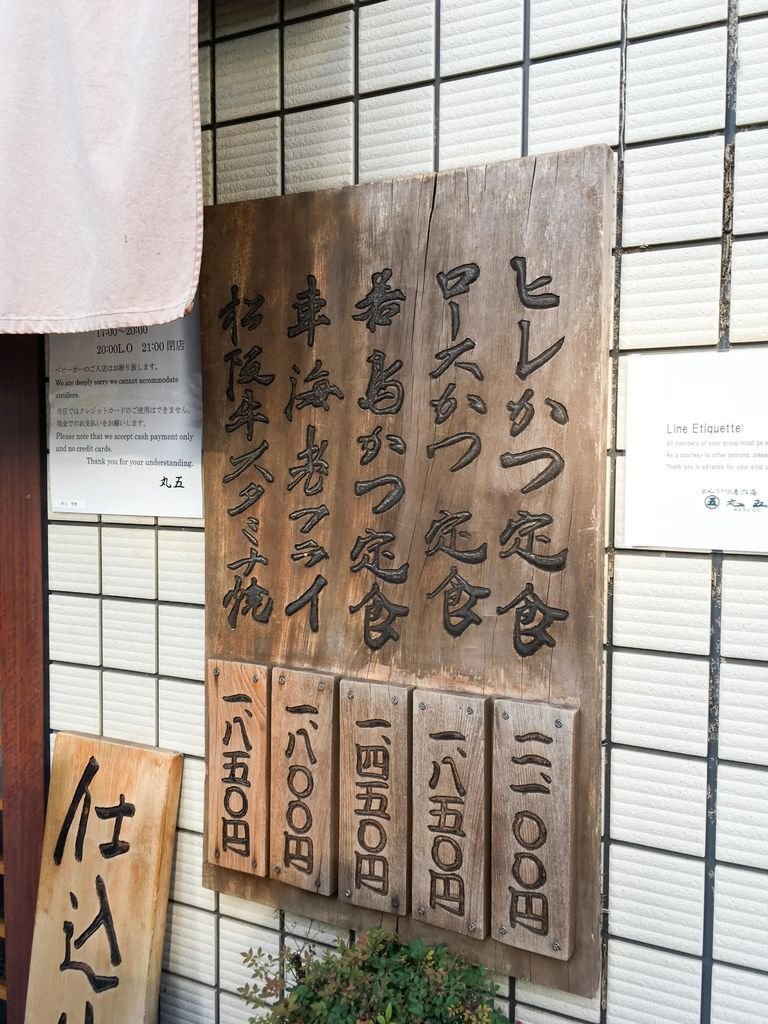 ヒレかつ定食
ロースかつ定食
若鳥かつ定食
車海老フライ
松阪牛スタミナ焼
二、一〇〇円
一、八五〇円
一、四五〇円
一、八〇〇円
一、八五〇円
17:00〜20:00
20:00L.O 21:00 閉店
ベビーカーのご入店はお断り致します。
We are deeply sorry we cannot accommodate
strollers.
当店ではクレジットカードのご使用はできません。
現金でのお支払いをお願いします。
Please note that we accept cash payment only
and no credit cards.
Thank you for your understanding.
丸五
仕込
Line Etiquette:
All members of your group must be
As a courtesy to other patrons, please
Thank you in advance for your kind
丸五